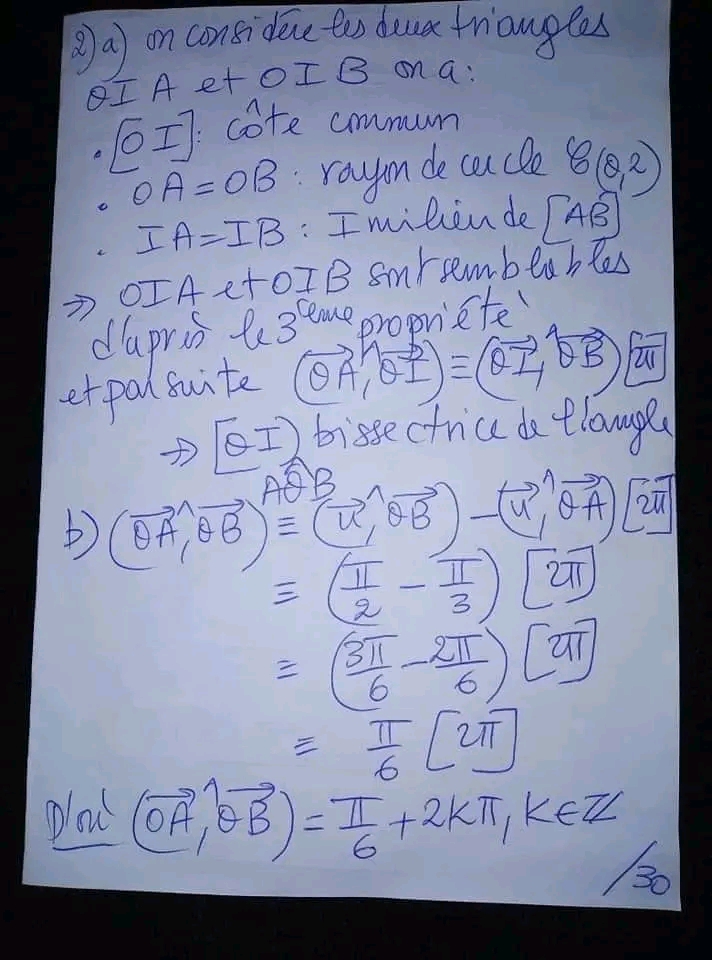 2) a) on considère les deux triangles
OIA et OIB on a:
. [OI]: côte commun
. OA=OB: rayon de cercle C(O,2)
. IA=IB: I milieu de [AB]
⇒ OIA et OIB sont semblables
d'après le 3ème propriété
et par suite (OA, OI) ≡ (OI, OB) [2π]
→ [OI) bissectrice de l'angle
AOB
b) (OA, OB) ≡ (u, OB) - (u, OA) [2π]
≡ (π/2 - π/3) [2π]
≡ (3π/6 - 2π/6) [2π]
≡ π/6 [2π]
D'où (OA, OB) = π/6 + 2Kπ, K∈ℤ
/30